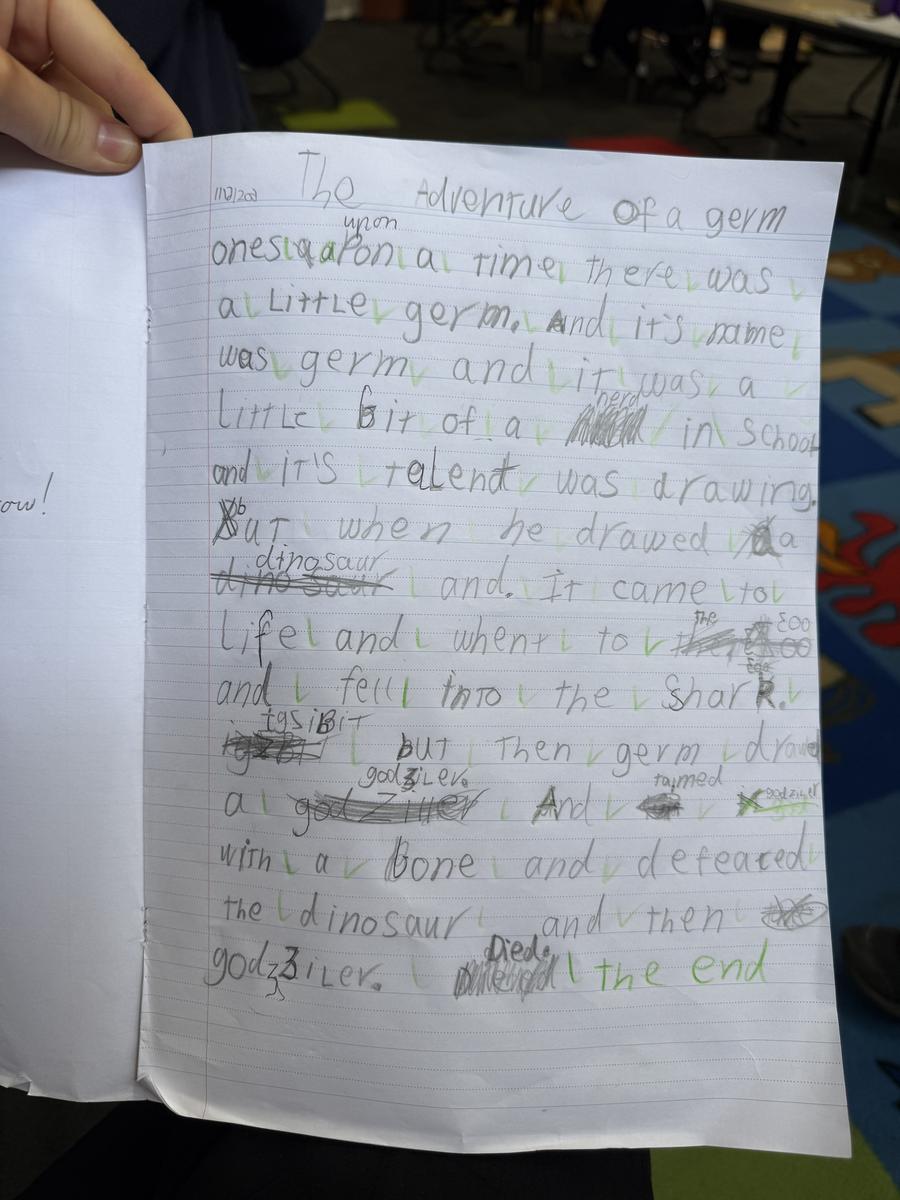 ow!
The Adventure of a germ
upon
ones apon a time there was
a Little germ. And it's name
was germ and it was a
nerd
Little bit of a in school
and it's talent was drawing.
But when he drawed a a
dinosaur
dino saur and. It came to
the zoo
Life and whent to
and fell into the Shark.
but then germ drawed
godziler. tamed godziler
a god ziller And
with a Bone and defeated
the dinosaur and then
Died.
godziler. the end